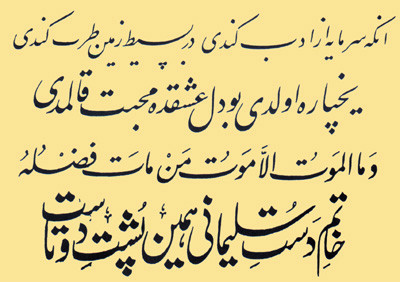 انکه سرمایه از ادب کندی در بسیط زمین طرب کندی
یخپاره اولدی بو دل عشقده محبت قالمدی
وما الموتُ الاَّ موتُ مَنْ ماتَ فضلُهُ
خاتمِ دَستِ سُلیمانی همین پُشتِ دوتاست